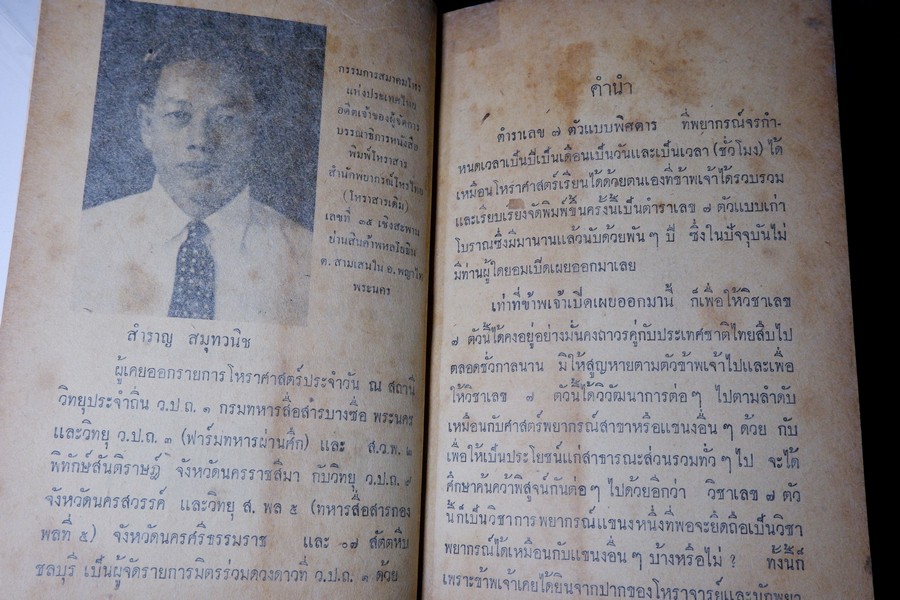 กรรมการสมาคมโหร
แห่งประเทศไทย
อดีตเจ้าของผู้จัดการ
บรรณาธิการหนังสือ
พิมพ์โหราสาร
สำนักพยากรณ์โหรไทย
(โหราสารเดิม)
เลขที่ ๓๕ เชิงสะพาน
ย่านสินค้าพหลโยธิน
ต. สามเสนใน อ. พญาไท
พระนคร
สำราญ สมุทวนิช
ผู้เคยออกรายการโหราศาสตร์ประจำวัน ณ สถานี
วิทยุประจำถิ่น ว.ป.ถ. ๑ กรมทหารสื่อสารบางซื่อ พระนคร
และวิทยุ ว.ป.ถ. ๓ (ฟาร์มทหารผ่านศึก) และ ส.ว.พ. ๒
พิทักษ์สันติราษฎ์ จังหวัดนครราชสีมา กับวิทยุ ว.ป.ถ. ๙
จังหวัดนครสวรรค์ และวิทยุ ส. พล ๕ (ทหารสื่อสารกอง
พลที่ ๕) จังหวัดนครศรีธรรมราช และ ๐๗ สัตตหีบ
ชลบุรี เป็นผู้จัดรายการมิตรร่วมดวงดาวที่ ว.ป.ถ. ๑ ด้วย
คำนำ
ตำราเลข ๗ ตัวแบบพิศดาร ที่พยากรณ์จรกำ-
หนดเวลาเป็นปีเป็นเดือนเป็นวันและเป็นเวลา (ชั่วโมง) ได้
เหมือนโหราศาสตร์เรียนได้ด้วยตนเองที่ข้าพเจ้าได้รวบรวม
และเรียบเรียงจัดพิมพ์ขึ้นครั้งนี้เป็นตำราเลข ๗ ตัวแบบเก่า
โบราณซึ่งมีมานานแล้วนับด้วยพัน ๆ ปี ซึ่งในปัจจุบันไม่
มีท่านผู้ใดยอมเปิดเผยออกมาเลย
เท่าที่ข้าพเจ้าเปิดเผยออกมานี้ ก็เพื่อให้วิชาเลข
๗ ตัวนี้ได้คงอยู่อย่างมั่นคงถาวรคู่กับประเทศชาติไทยสืบไป
ตลอดชั่วกาลนาน มิให้สูญหายตามตัวข้าพเจ้าไปและเพื่อ
ให้วิชาเลข ๗ ตัวนี้ได้วิวัฒนาการต่อ ๆ ไปตามลำดับ
เหมือนกับศาสตร์พยากรณ์สาขาหรือแขนงอื่น ๆ ด้วย กับ
เพื่อให้เป็นประโยชน์แก่สาธารณะส่วนรวมทั่ว ๆ ไป จะได้
ศึกษาค้นคว้าพิสูจน์กันต่อ ๆ ไปด้วยอีกว่า วิชาเลข ๗ ตัว
นี้ก็เป็นวิชาการพยากรณ์แขนงหนึ่งที่พอจะยึดถือเป็นวิชา
พยากรณ์ได้เหมือนกับแขนงอื่น ๆ บ้างหรือไม่ ? ทั้งนี้ก็
เพราะข้าพเจ้าเคยได้ยินจากปากของโหราจารย์และนักพยา